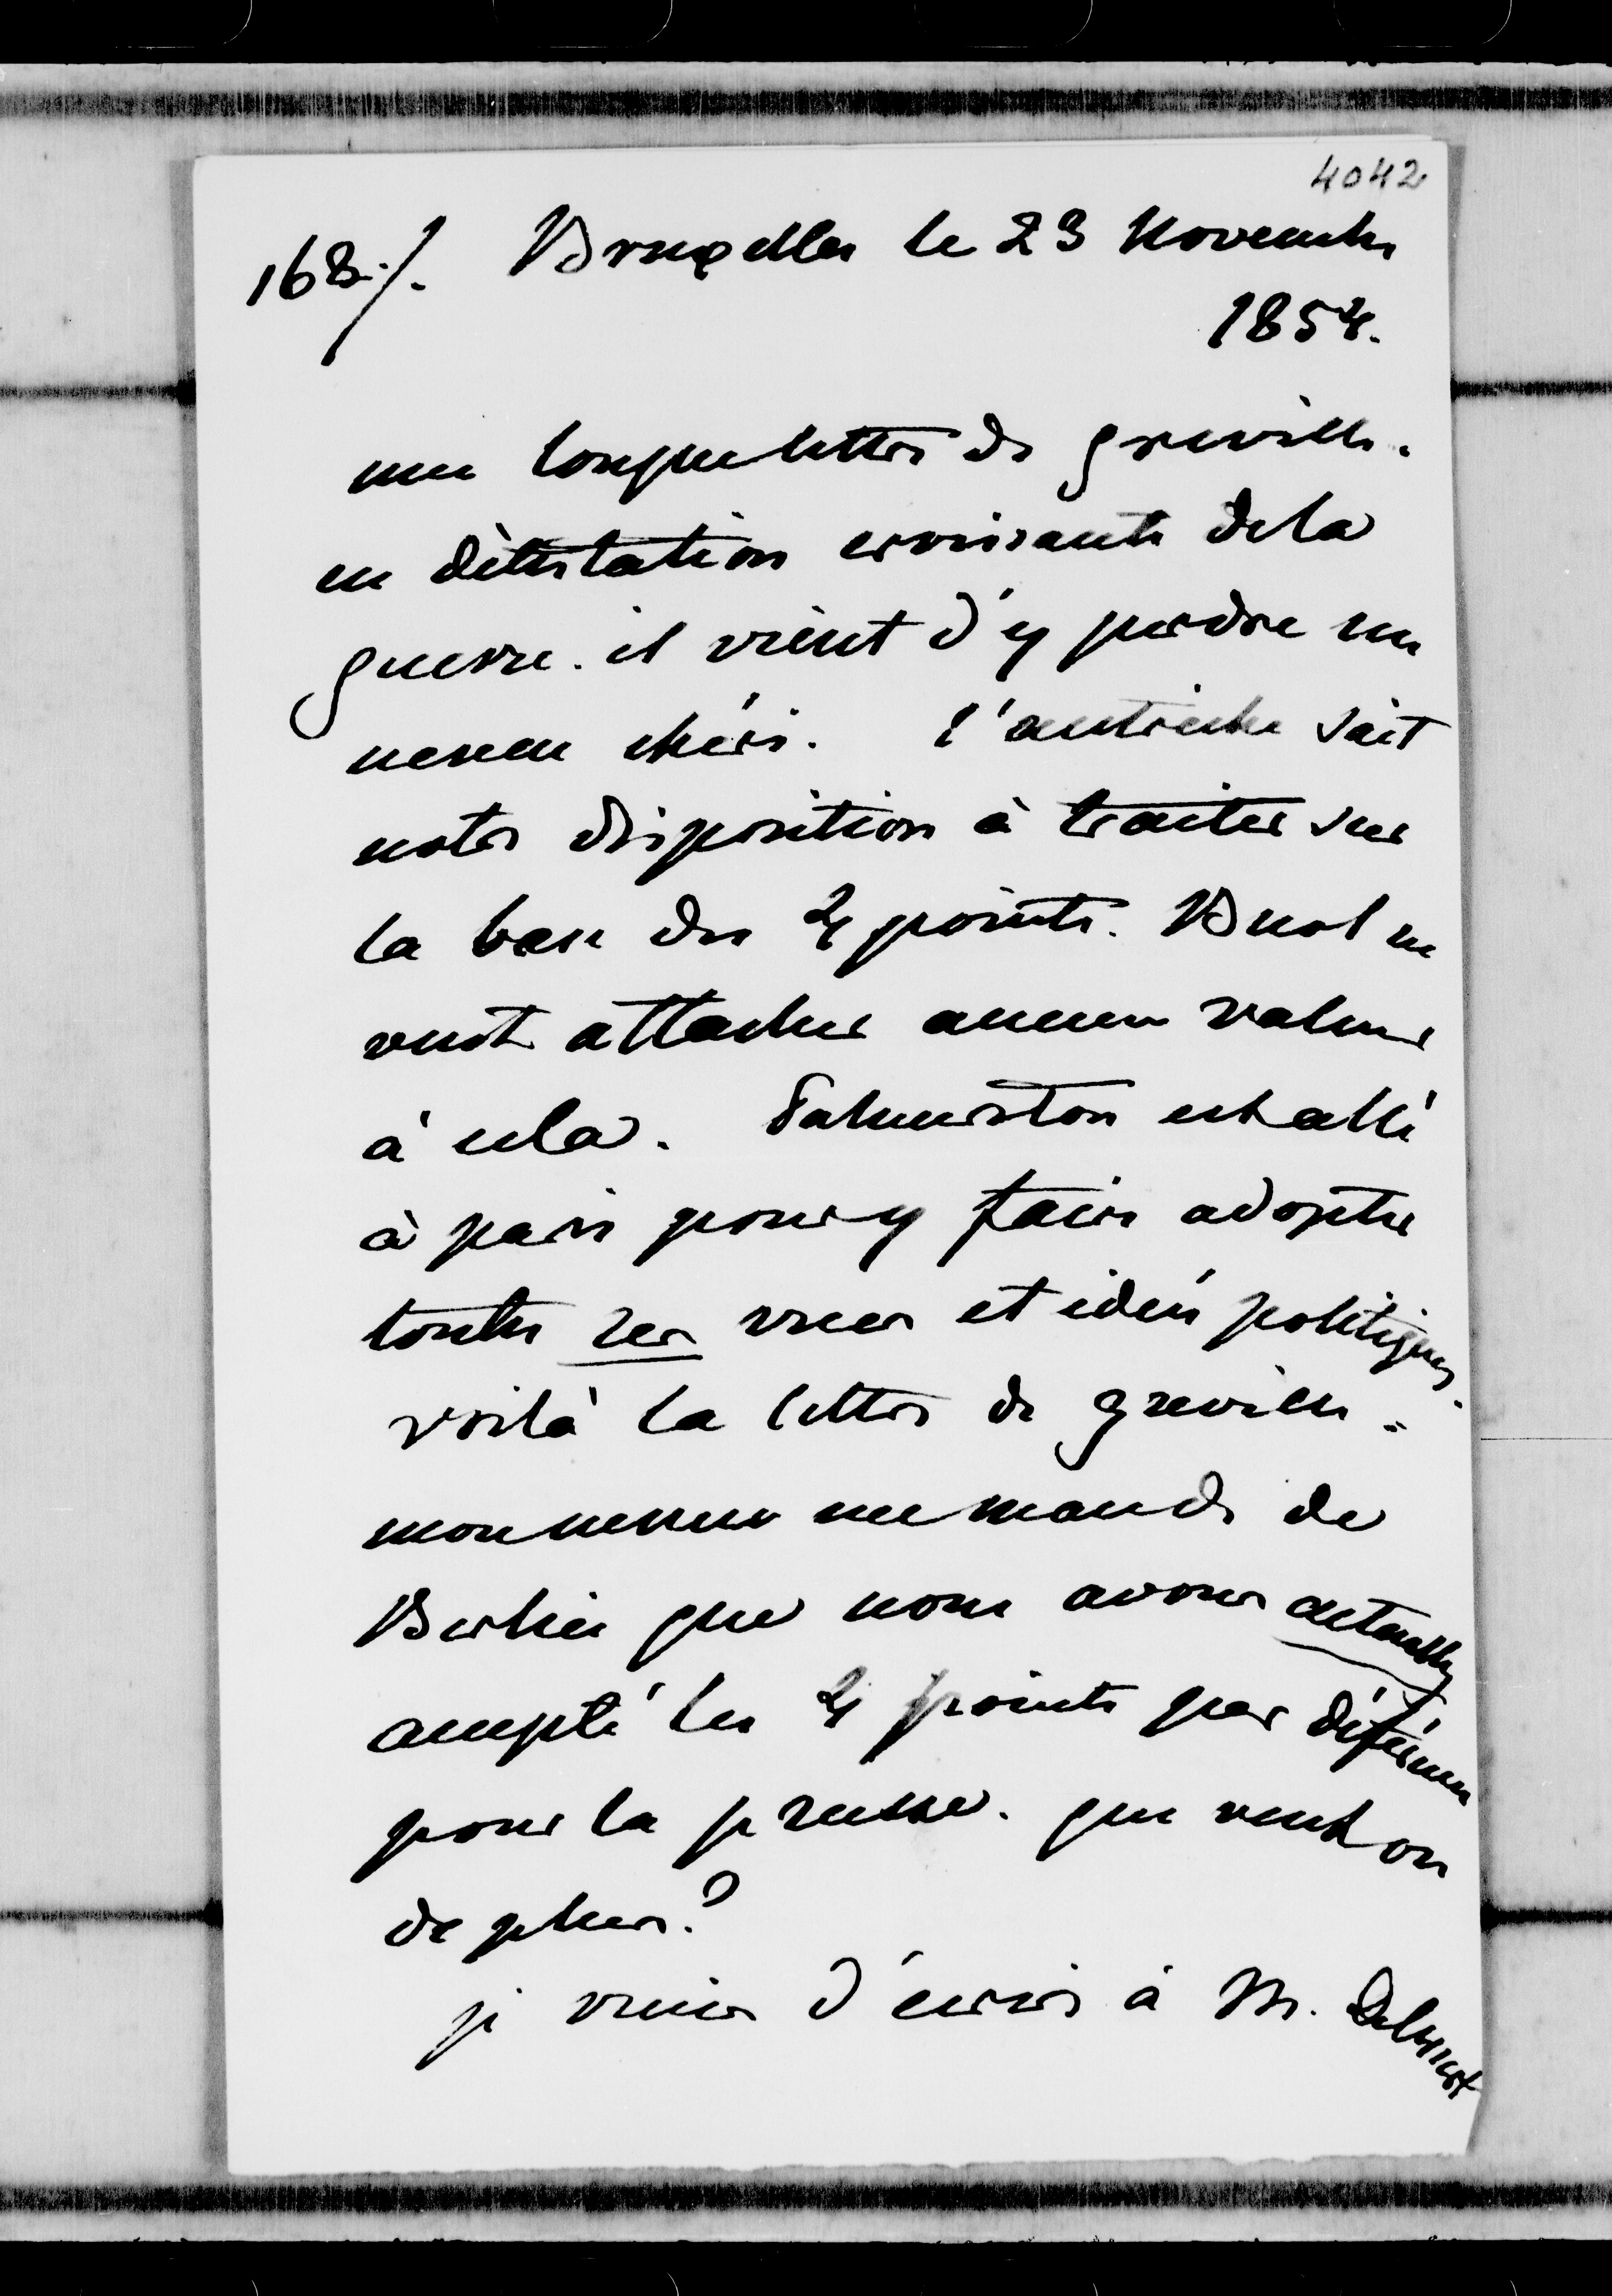 4042
168./. Bruxelles le 23 Novembre
1854.
une longue lettre de greville.
en détestation croissante de la
guerre. il vient d'y perdre un
neveu chéri. l'autriche sait
notre disposition à traiter sur
la base des 4 points. Buol ne
veut attacher aucune valeur
à cela. Palmerston est allé
à paris pour y faire adopter
toutes ses vues et idées politiques.
voilà la lettre de greville.
mon neveu me mande de
Berlin que nous avons
accepté les 4 points par déférence
pour la prusse. que veut on
de plus?
je viens d'écrire à M.